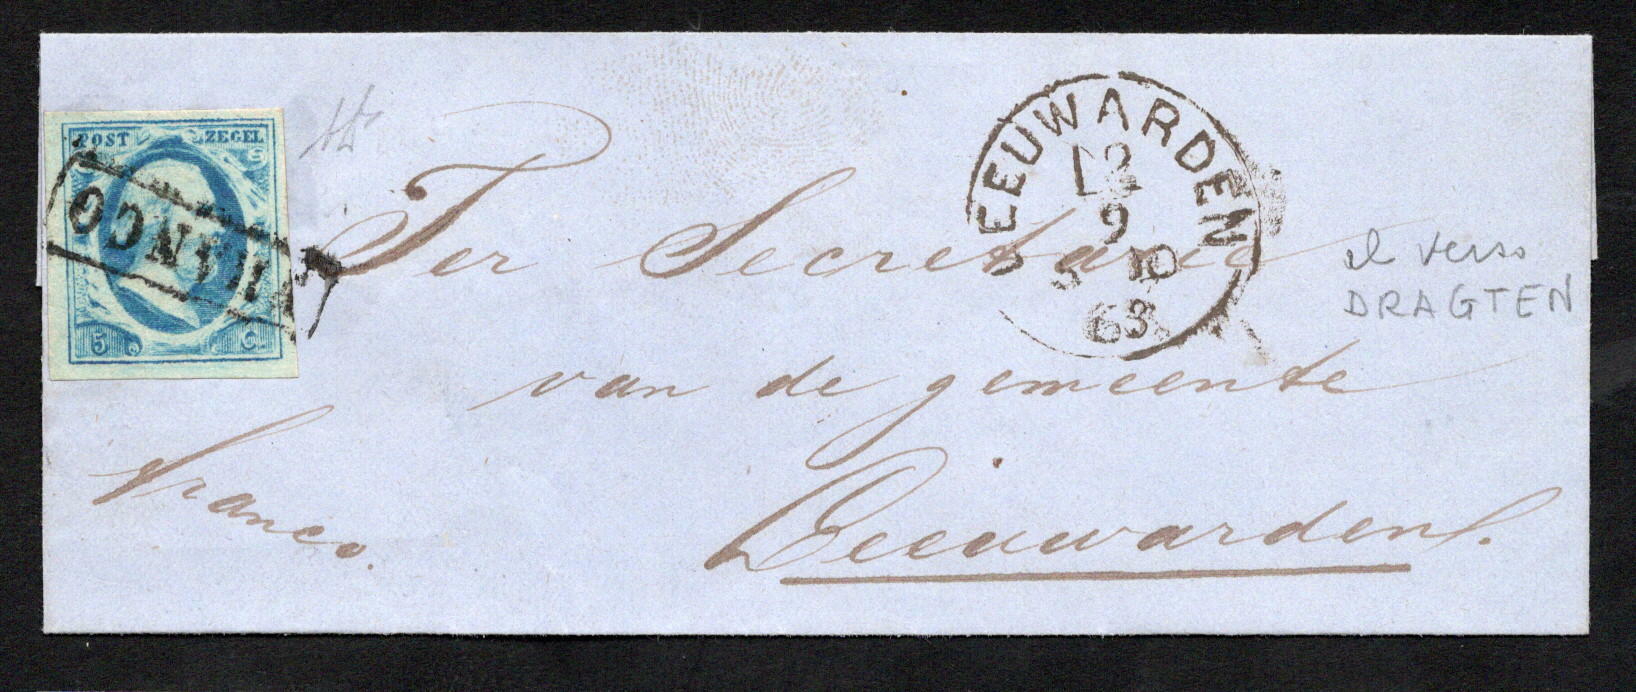 POST ZEGEL
5 C
FRANCO
LEEUWARDEN
12
9
5 10
63
Ter Secretarie
van de gemeente
Leeuwarden.
Franco.
verso
DRAGTEN